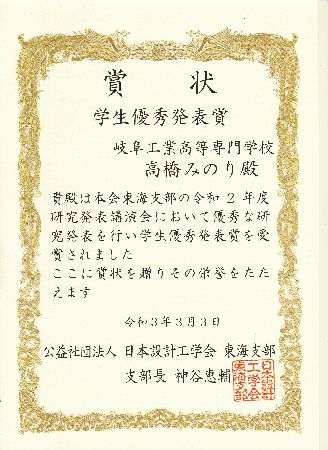 賞状
学生優秀発表賞
岐阜工業高等専門学校
高橋みのり殿
貴殿は本会東海支部の令和2年度
研究発表講演会において優秀な研
究発表を行い学生優秀発表賞を受
賞されました
ここに賞状を贈りその栄誉をたた
えます
令和3年3月3日
公益社団法人 日本設計工学会 東海支部
支部長 神谷恵輔
日本設計
工学会
東海支部